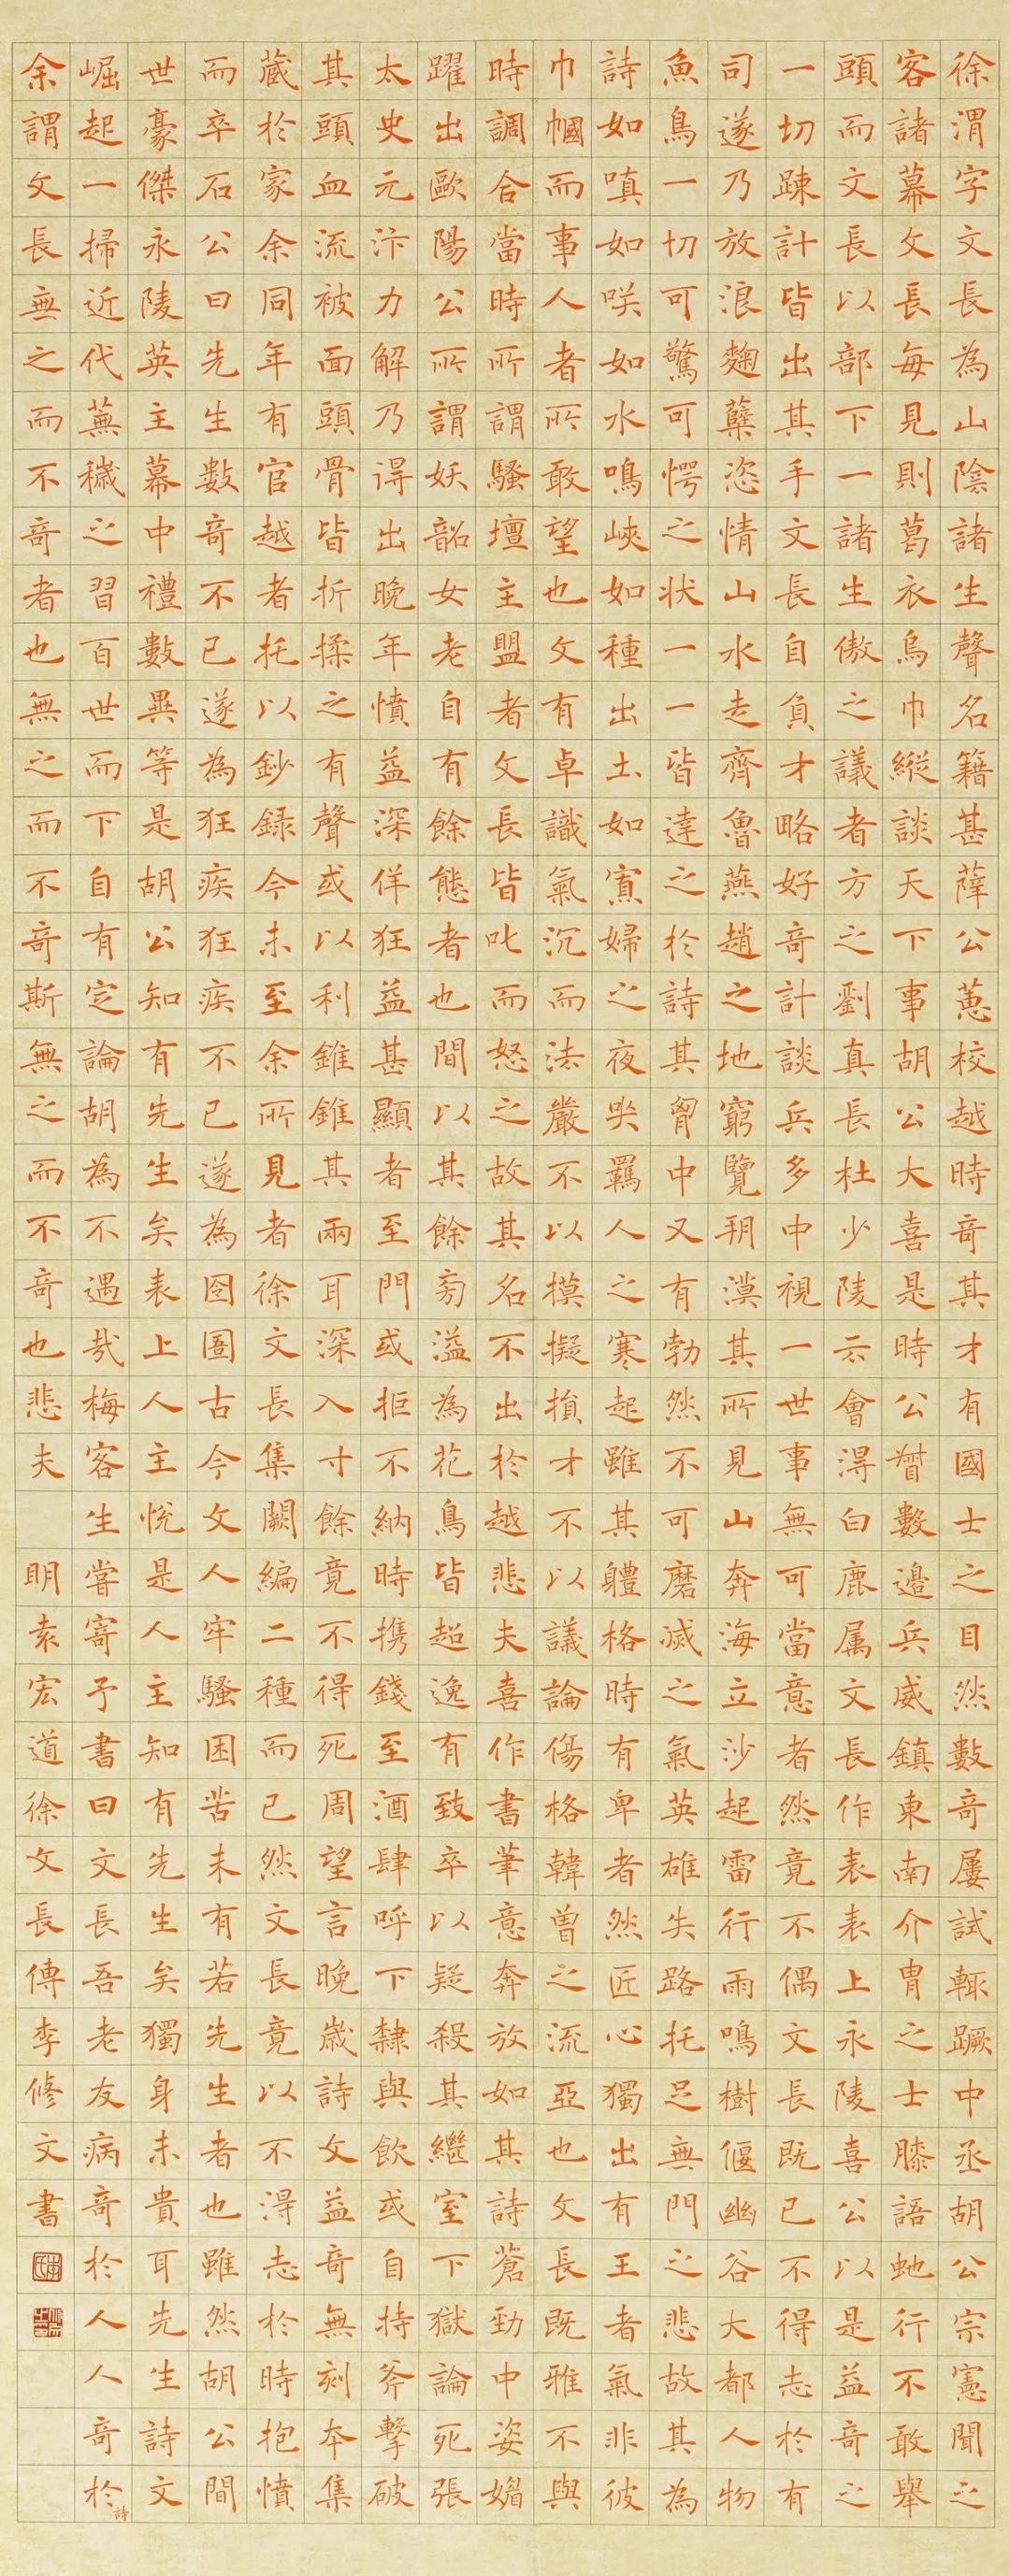 徐渭字文長為山陰諸生聲名籍甚薛公蕙校越時奇其才有國士之目然數奇屢試輒蹶中丞胡公宗憲聞之
客諸幕文長每見則葛衣烏巾縱談天下事胡公大喜是時公督數邊兵威鎮東南介胄之士膝語虵行不敢舉
頭而文長以部下一諸生傲之議者方之劉真長杜少陵云會得白鹿属文長作表表上永陵喜公以是益奇之
一切踈計皆出其手文長自負才略好奇計談兵多中視一世事無可當意者然竟不偶文長既已不得志於有
司遂乃放浪麴糵恣情山水走齊魯燕趙之地窮覽朔漠其所見山奔海立沙起雷行雨鳴樹偃幽谷大都人物
魚鳥一切可驚可愕之狀一一皆達之於詩其胷中又有勃然不可磨滅之氣英雄失路托足無門之悲故其為
詩如嗔如咲如水鳴峽如種出土如寡婦之夜哭羈人之寒起雖其軆格時有卑者然匠心獨出有王者氣非彼
巾幗而事人者所敢望也文有卓識氣沉而法嚴不以摸擬損才不以議論傷格韓曾之流亞也文長既雅不與
時調合當時所謂騷壇主盟者文長皆叱而怒之故其名不出於越悲夫喜作書筆意奔放如其詩蒼勁中姿媚
躍出歐陽公所謂妖韶女老自有餘態者也間以其餘旁溢為花鳥皆超逸有致卒以疑殺其繼室下獄論死張
太史元汴力解乃得出晚年憤益深佯狂益甚顯者至門或拒不納時携錢至酒肆呼下隸與飲或自持斧擊破
其頭血流被面頭骨皆折揉之有聲或以利錐錐其兩耳深入寸餘竟不得死周望言晚歲詩文益奇無刻本集
藏於家余同年有官越者托以鈔録今未至余所見者徐文長集闕編二種而已然文長竟以不得志於時抱憤
而卒石公曰先生數奇不已遂為狂疾狂疾不已遂為囹圄古今文人牢騷困苦未有若先生者也雖然胡公間
世豪傑永陵英主幕中禮數異等是胡公知有先生矣表上人主悅是人主知有先生矣獨身未貴耳先生詩文
崛起一掃近代蕪穢之習百世而下自有定論胡為不遇哉梅客生嘗寄予書曰文長吾老友病奇於人人奇於詩
余謂文長無之而不奇者也無之而不奇斯無之而不奇也悲夫 明袁宏道徐文長傳李修文書